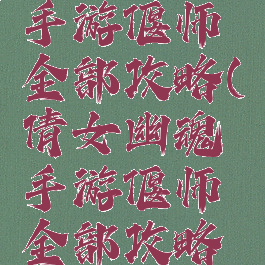 手游偃师
全部攻略(
倩女幽魂
手游偃师
全部攻略